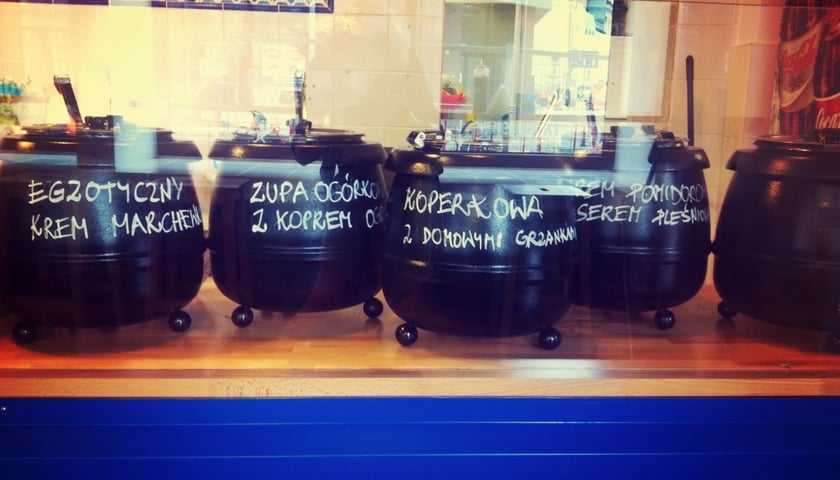 EGZOTYCZNY
KREM MARCHEWK
ZUPA OGÓRKO
Z KOPREM
KOPERKOWA
Z DOMOWYMI GRZANKAM
REM POMIDORO
SEREM PLEŚNIOW